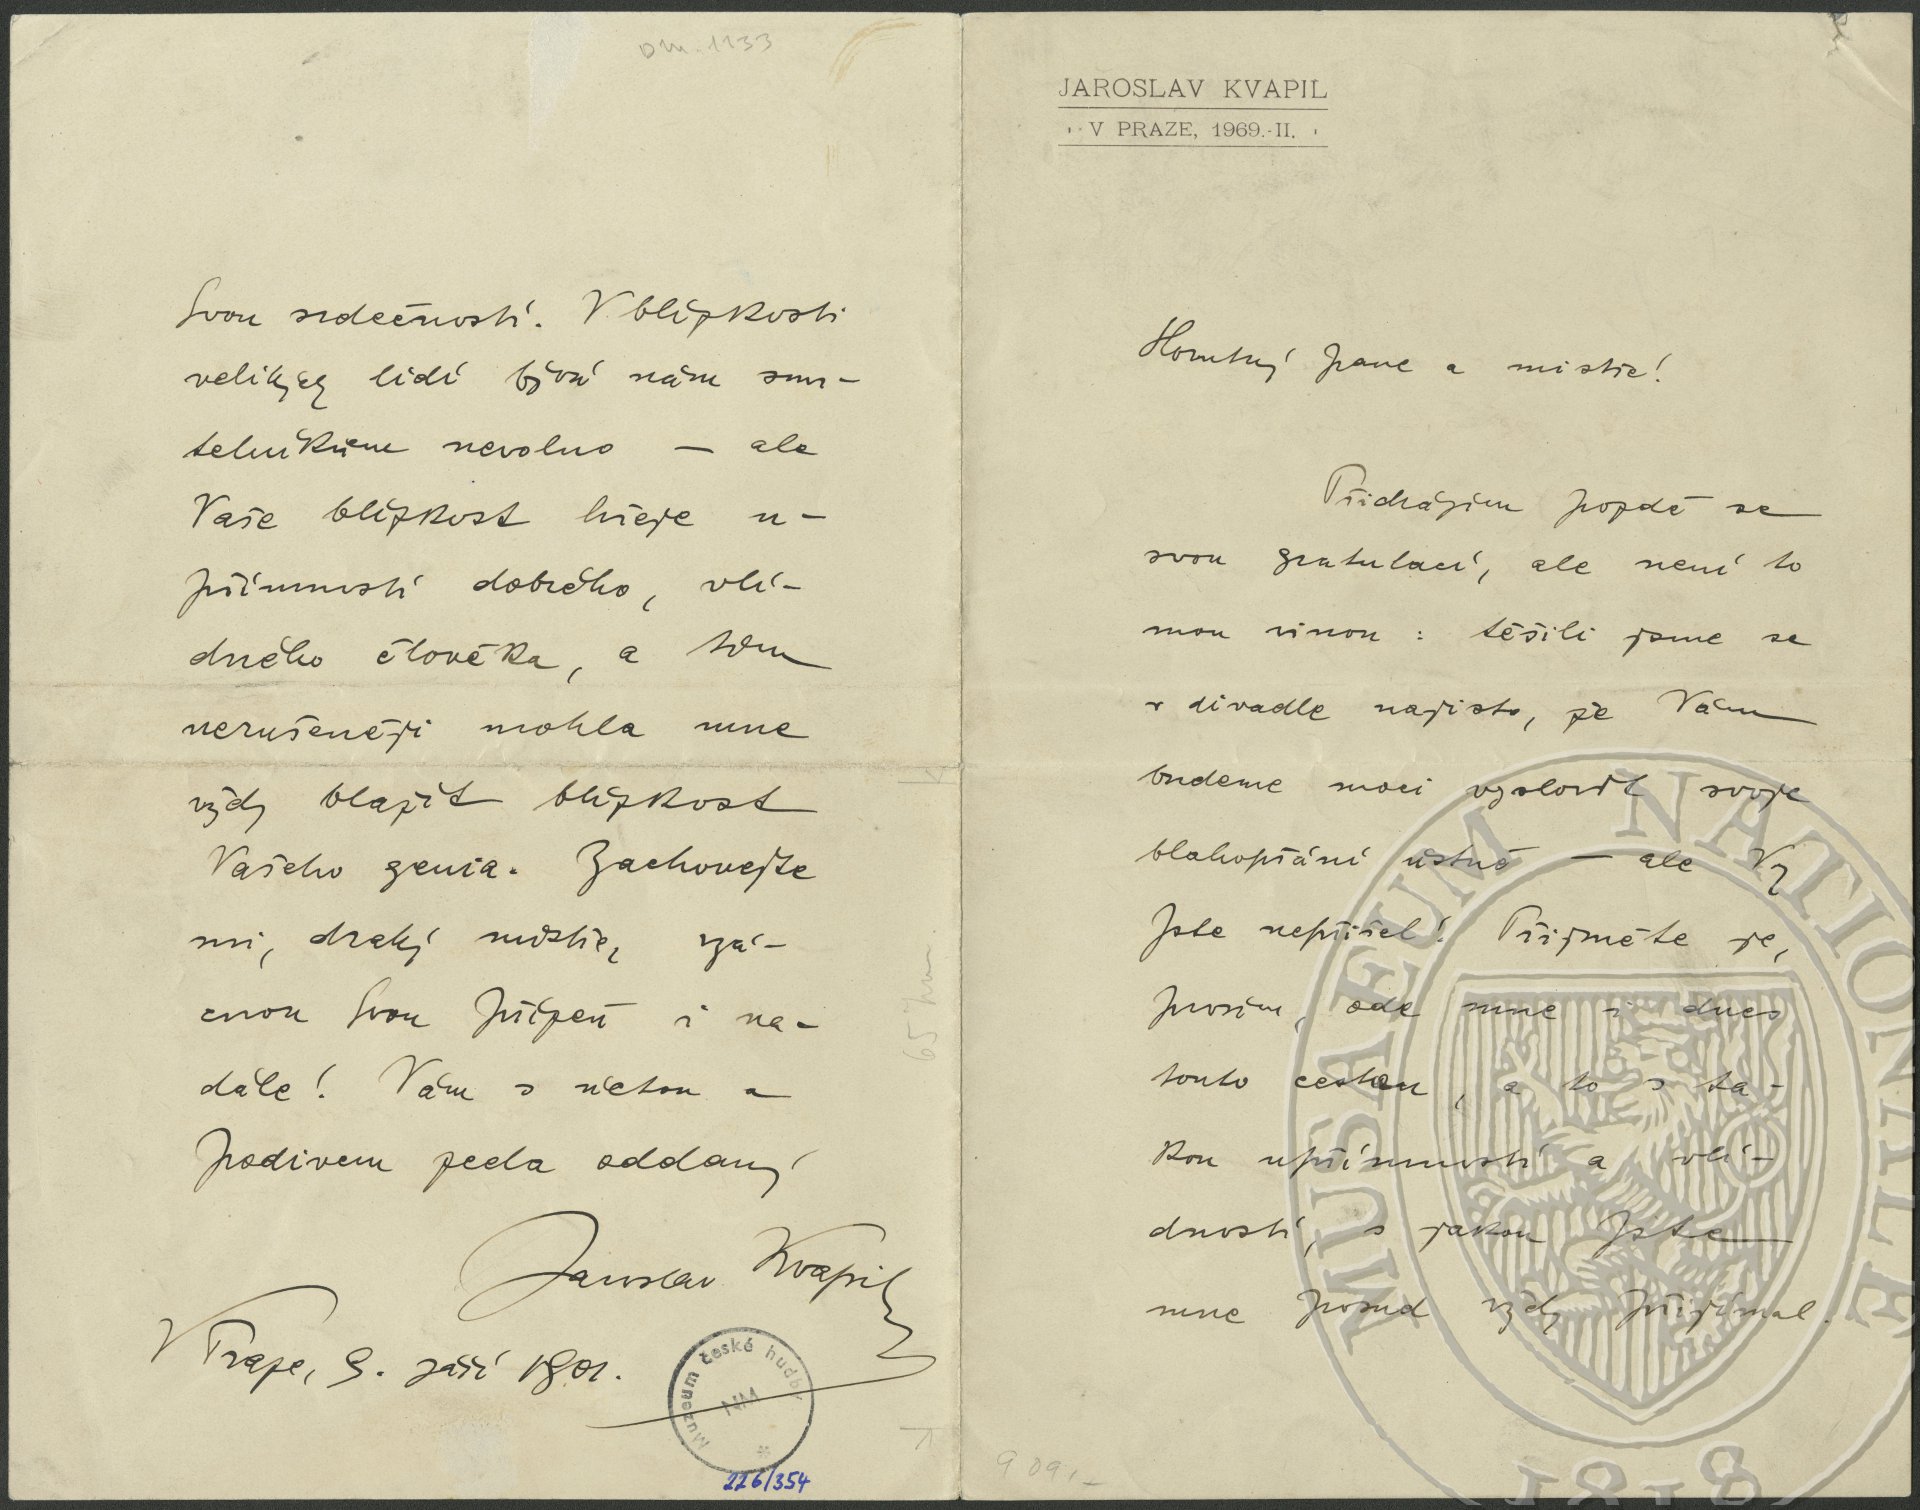 JAROSLAV KVAPIL
V PRAZE, 1969.-II.
pane a mistře!
Přicházím pozdě se
svou gratulací, ale není to
mou vinou : těšili jsme se
v divadle najisto, že Vám
budeme moci vyslovit svoje
blahopřání ústně — ale Vy
jste nepřišel! Přijměte je,
prosím, ode mne i dnes
touto cestou, a to s ta-
kou upřímností a vlí-
dností, s jakou jste
mne posud vždy přijímal.
Svou srdečností. V blízkosti
velikých lidí bývá nám smr-
telníkům nevolno — ale
Vaše blízkost hřeje u-
přímností dobrého, vlí-
dného člověka, a tím
nerušeněji mohla mne
vždy blažit blízkost
Vašeho genia. Zachovejte
mi, drahý mistře, vzá-
cnou Svou přízeň i na-
dále! Vám s úctou a
podivem zcela oddaný
Jaroslav Kvapil
V Praze, 9. září 1901.
Muzeum české hudby
NM
226/354
DM. 1133
909,-
MUSAEUM NATIONALE
1818